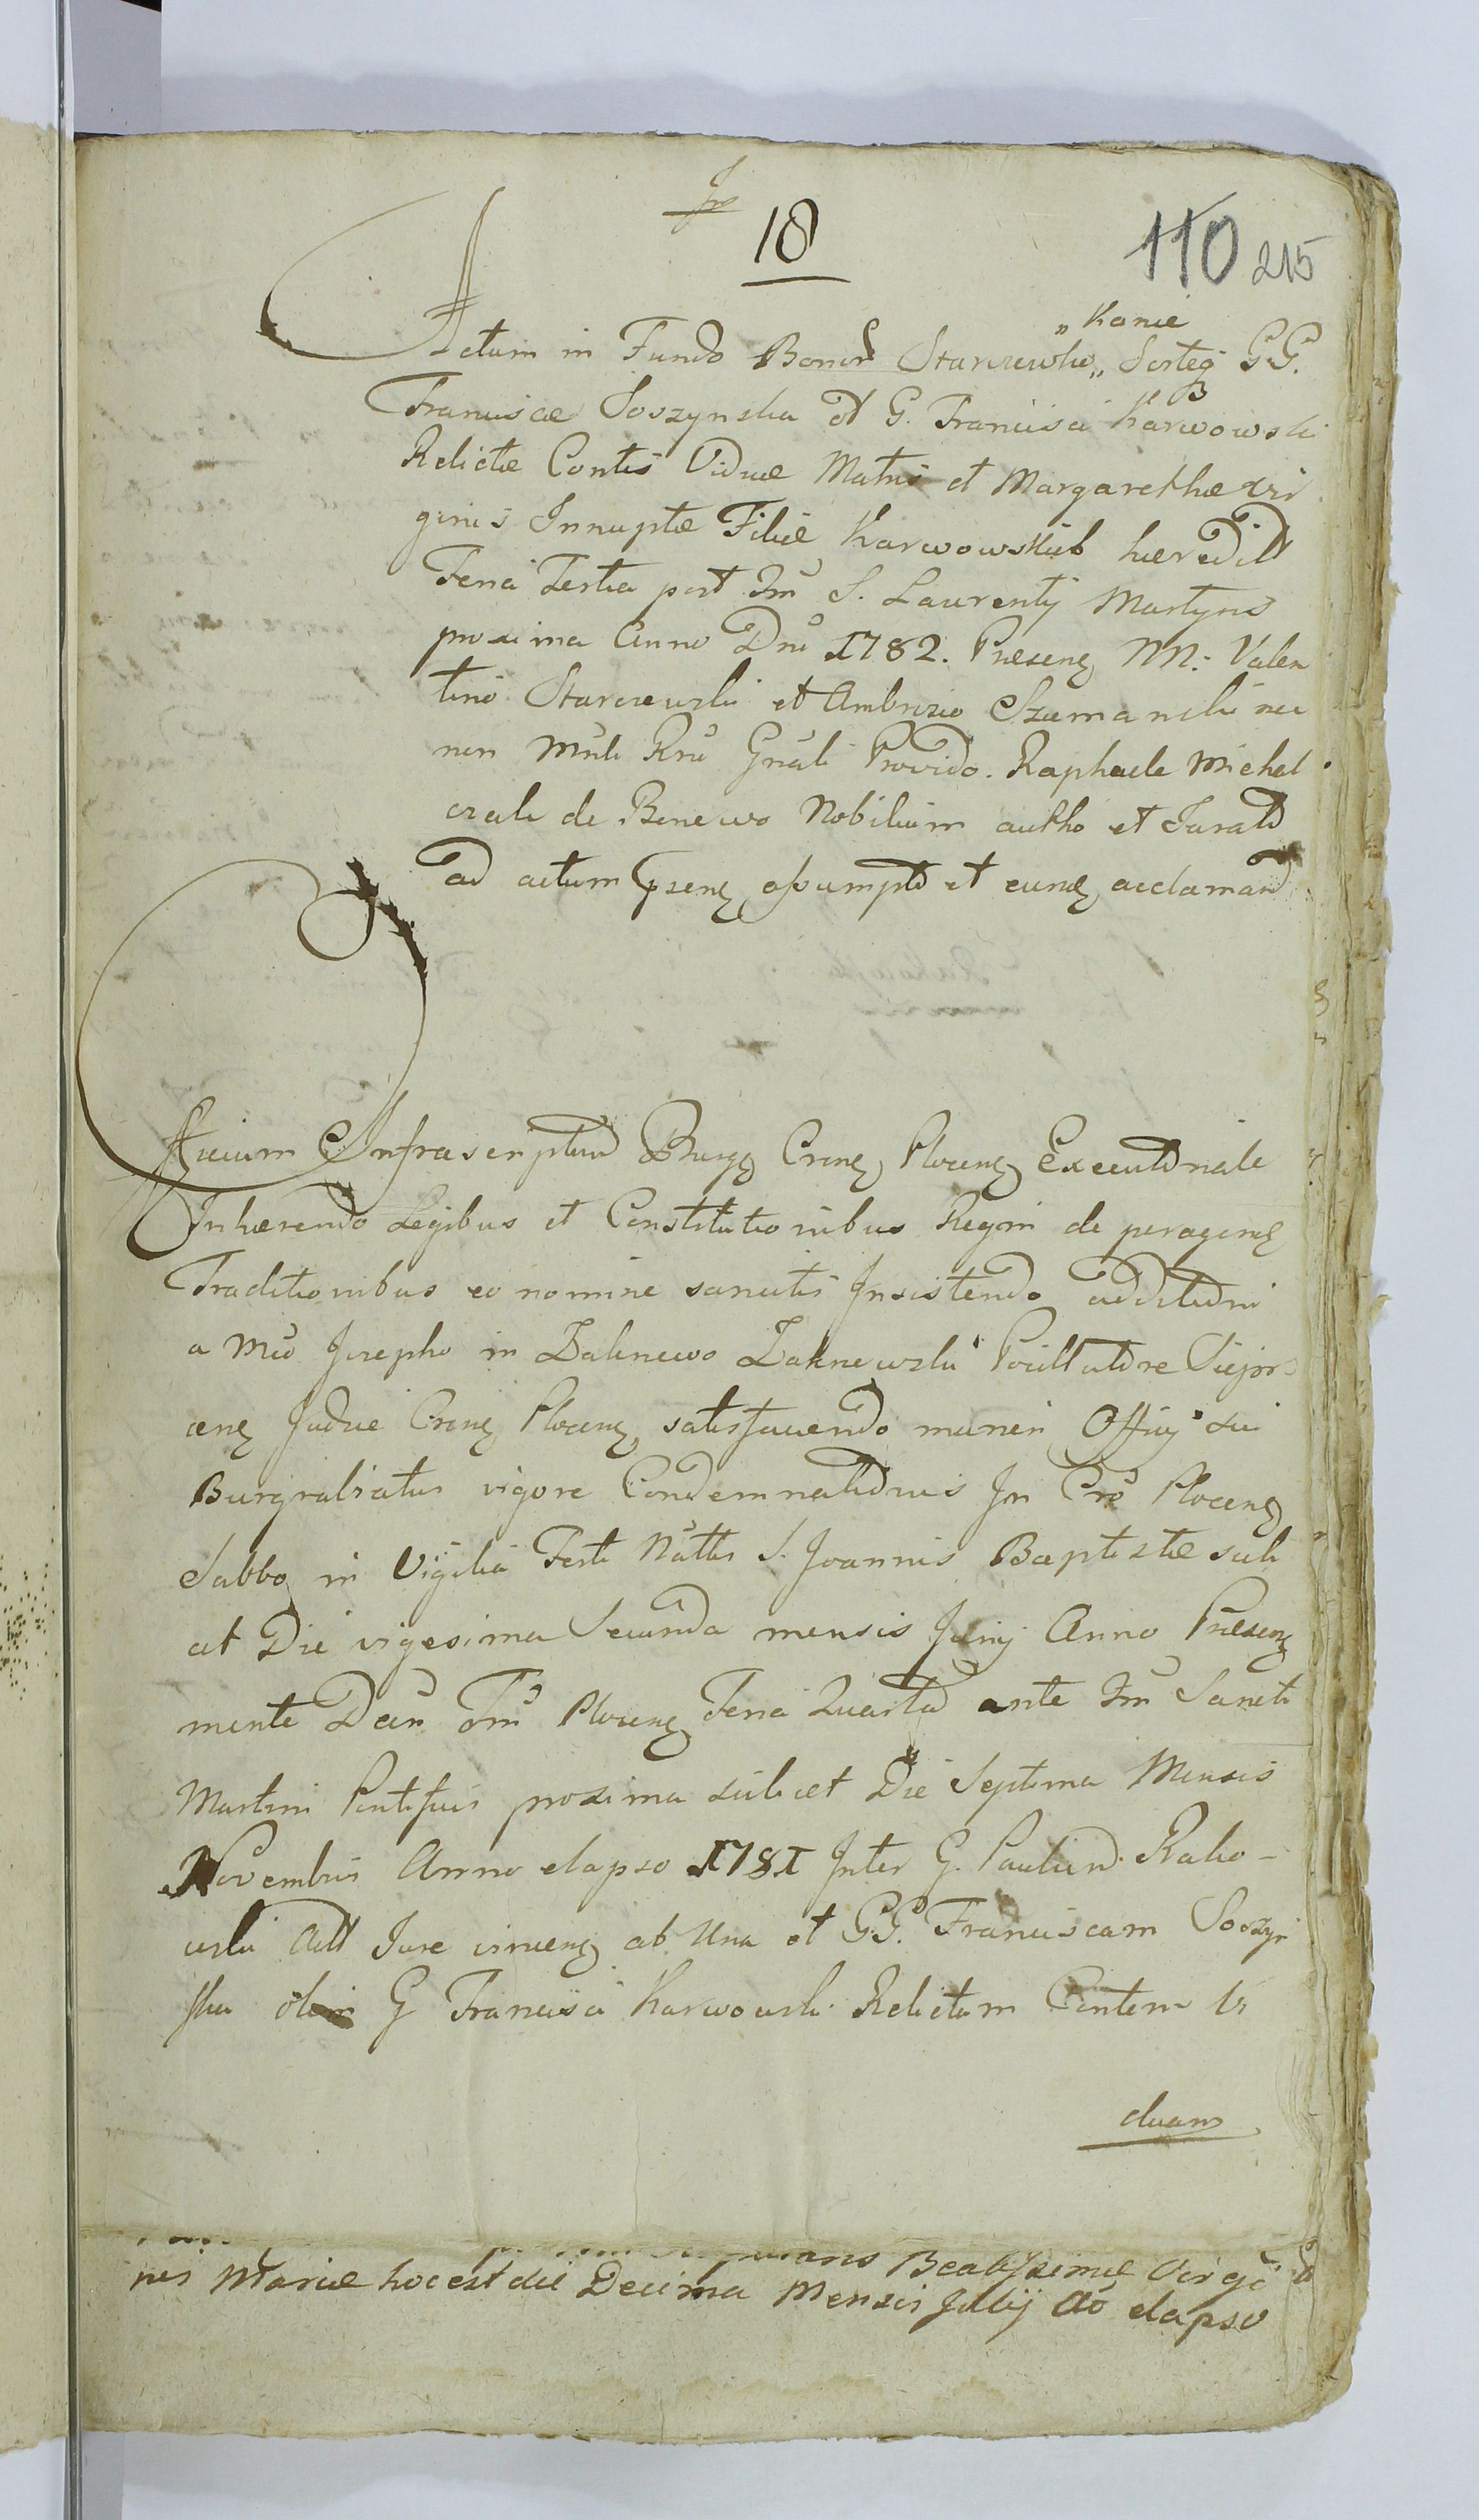 18
110 215
"Kanie
Actum in Fundo Bonor Starczewko" Sorteg GG.
Franciscæ Soszynska ol G. Francisci Karwowski
Relictæ Contis Viduæ Matris et Margarethæ Vir
ginis Innuptæ Filiæ Karwowskich hæredit
Feria Tertia post Fm S. Laurentij Martyris
proxima Anno Dni 1782. Præsen NN: Valen
tino Starczewski et Ambrozio Szumanski nec
non Mnli Rni Gnali Provido. Raphaele Michal
czak de Bonewo Nobilium autho et Jurato
ad actum psen assumpto et eund acclamand
Officium Infrascriptum Burg Cren Plocen Executoriale
Inhærendo Legibus et Constitutionibus Regni de peragend
Traditionibus eo nomine sancitis Insistendo additioni
a Mco Josepho in Zalenewo Vicepor
cen Judice Cren Plocen, satisfaciendo muneri Officij sui
Burgrabiatus vigore Condemnatorius In Cro Plocen
Sabbo in Vigilia Festi Nattis S. Joannis Baptistæ scili
cet Die vigesima Secunda mensis Junij Anno Præsen
mente Decr Trn Plocen Feria Quarta ante Fm Sancti
Martini Pontificis proxima scilicet Die Septima Mensis
Novembris Anno elapso 1781 Inter G. Paulum Rako-
wski Act Jure vincen ab Una et GG. Franciscam Soszyn
ska olim G Francisci Karwowski Relictam Contem Vi
duam
Beatissimæ Virgi
nis Mariæ hoc est die Decima Mensis Julij Ao elapso